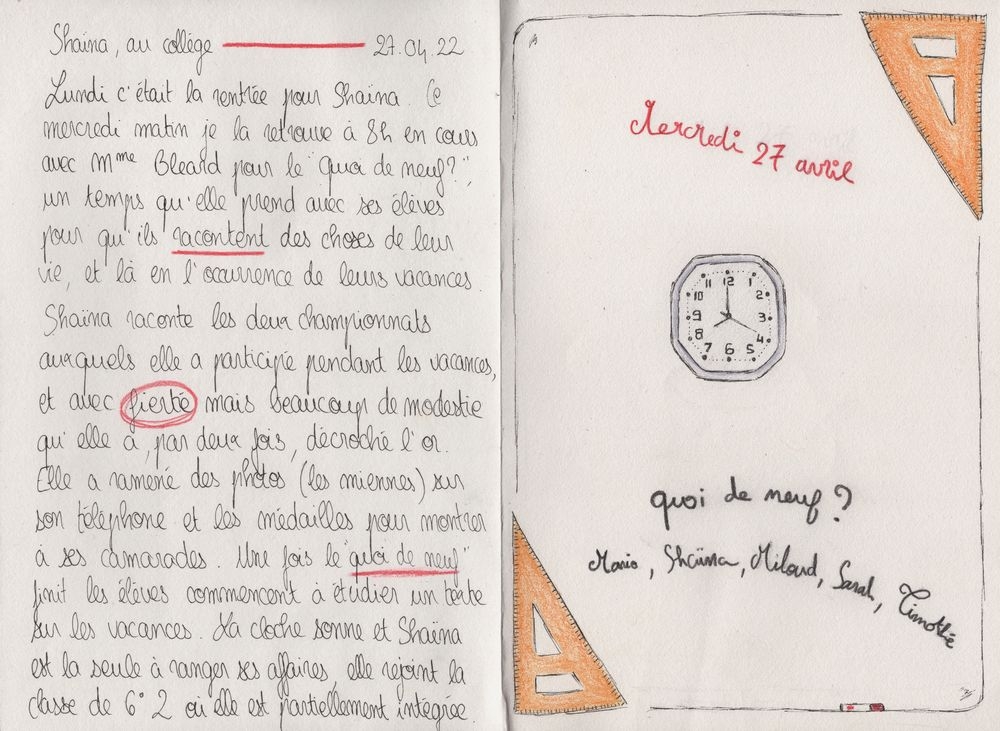 Shaïna, au collège 27.04.22
Lundi c'était la rentrée pour Shaïna. Ce
mercredi matin je la retrouve à 8h en cours
avec Mme Bleard pour le "Quoi de neuf?",
un temps qu'elle prend avec ses élèves
pour qu'ils racontent des choses de leur
vie, et là en l'ocurrence de leurs vacances.
Shaïna raconte les deux championnats
auxquels elle a participé pendant les vacances,
et avec fierté mais beaucoup de modestie
qu'elle a, par deux fois, décroché l'or.
Elle a ramené des photos (les miennes) sur
son téléphone et les médailles pour montrer
à ses camarades. Une fois le "quoi de neuf"
finit les élèves commencent à étudier un texte
sur les vacances. La cloche sonne et Shaïna
est la seule à ranger ses affaires, elle rejoint la
classe de 6°2 où elle est partiellement intégrée.
Mercredi 27 avril
12
11 1
10 2
9 3
8 4
7 6 5
quoi de neuf ?
Mario, Shaïna, Miloud, Sarah, Timothée